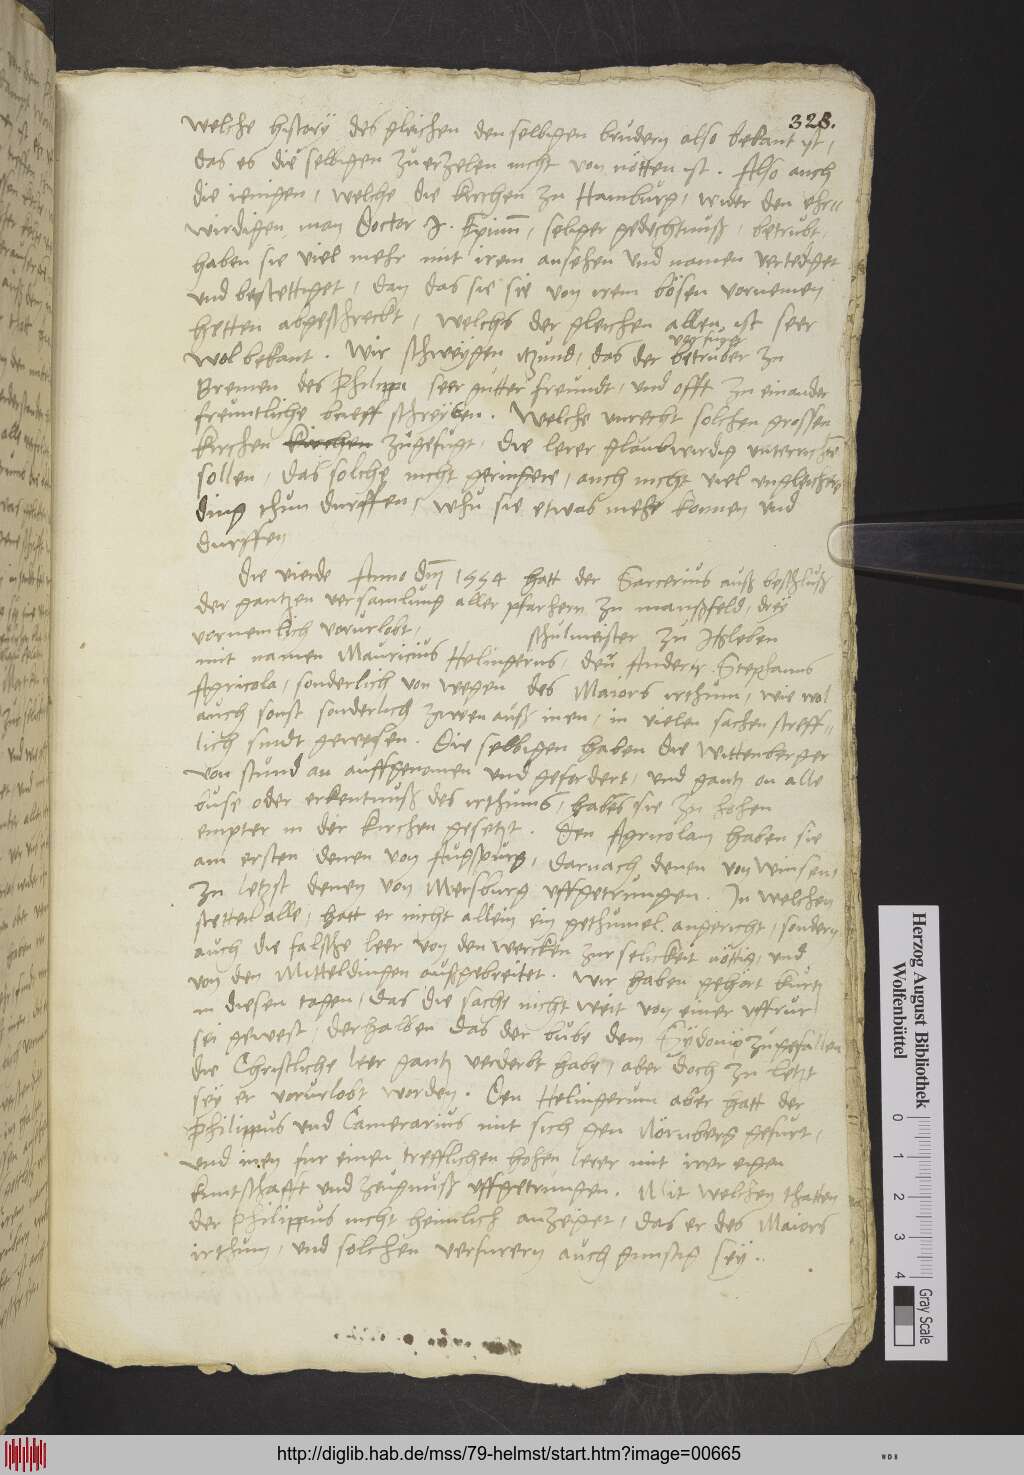 328.
welche history des gleichen den selbigen brudern also bekant ist,
das es die selbigen zu erzelen nicht von nötten ist. Also auch
die ienigen, welche die kirchen zu Hamburg, wider den ehr=
wirdigen man Doctor J. Epinum, seliger gedechtnuß, betrubt,
haben sie viel mehr mit irem ansehen und namen vertediget
und bestettiget, dan das sie sie von irem bösen vornemen
hetten abgeschreckt, welchs der gleichen allen ist seer
verfurer
wol bekant. Wir schweygen itzund, das der betruber zu
Bremen des Philippi seer gutter freundt, und offt zu einander
freuntliche brieff schreyben. Welche unrecht solchen grossen
kirchen kirchen zugefugt, die lerer glaubwirdig unterrichte
sollen, das solche nicht geringere, auch nicht viel ungleichere
ding thun durffen, whu sie etwas mehr konnen und
durffen
Die vierde Anno dm 1554 hatt der Sarcerius auß beschluß
der gantzen versamlung aller pfarhern zu manßfeld, drey
vornemlich vorurlobt, schulmeister zu Isleben
mit namen Mauricius Helingerus, den Andern Stephanus
Agricola, sonderlich von wegen des Maiors irthum, wie wol
auch sonst sonderlich zween auß inen, in vielen sachen streff=
lich sindt gewesen. Die selbigen haben die Wittenberger
von stund an auffgenomen und gefordert, und gantz on alle
buse oder erkentnuß des irthums, haben sie zu hohen
empter in der kirchen gesetzt. Den Agricolam haben sie
am ersten denen von Augspurg, darnach denen von Winsen,
zu letzst denen von Mersburg uffgetrungen. In welchen
stetten alle, hatt er nicht allein ein gethumel angericht, sondern
auch die falsche leer von den wercken zur selickeit nöttig, und
von den Mitteldingen außgebreitet. Wir haben gehört kurtz
in diesen tagen, das die sache nicht weit von einer uffrur
sei gewest, derhalben das der bube dem Sydonio zugefallen
die Christliche leer gantz verderbt habe, aber doch zu letzt
sey er vorurlobt worden. Den Helingerum aber hatt der
Philippus und Camerarius mit sich gen Nörnberg gefurt,
und inen fur einen trefflichen hohen leerer mit irer eigen
kuntschafft und zeugnuß uffgetrungen. Mit welchen thatten
der Philippus nicht heimlich anzeiget, das er des Maiors
irthum, und solchen verfurern auch gunstig sey.
Herzog August Bibliothek
Wolfenbüttel
0 1 2 3 4
Gray Scale
http://diglib.hab.de/mss/79-helmst/start.htm?image=00665